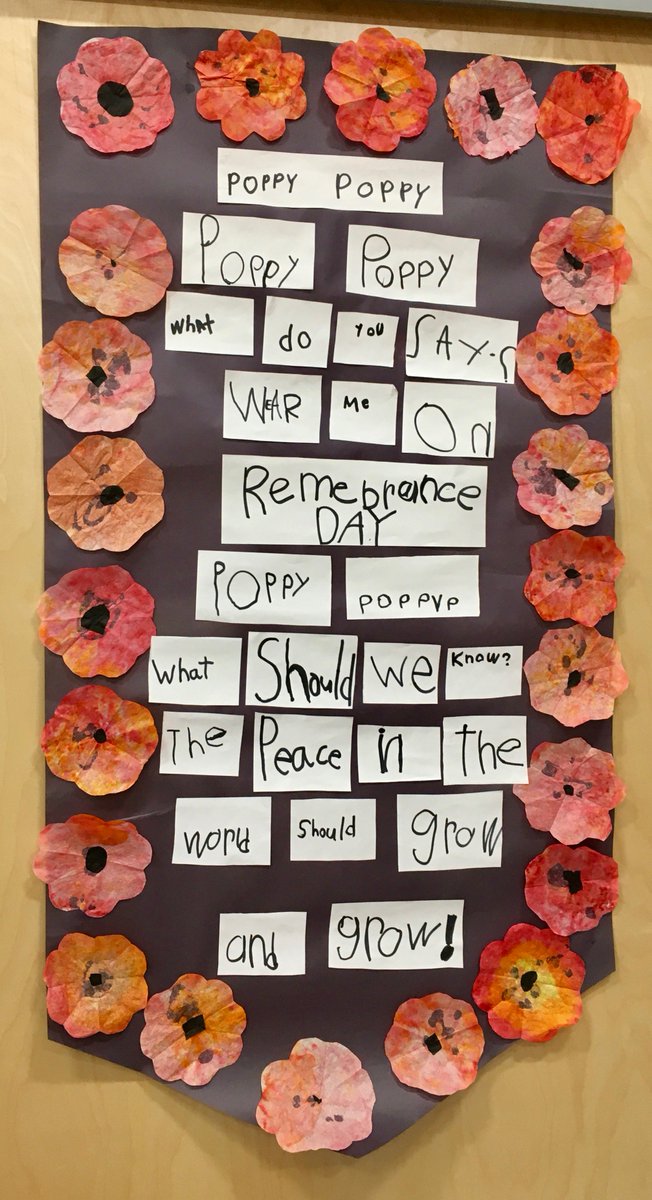 POPPY POPPY
POPPY POPPY
What do you SAY?
WEAR Me ON
Remebrance
DAY
POPPY POPPYP
What Should we Know?
The Peace in the
world Should grow
and grow!